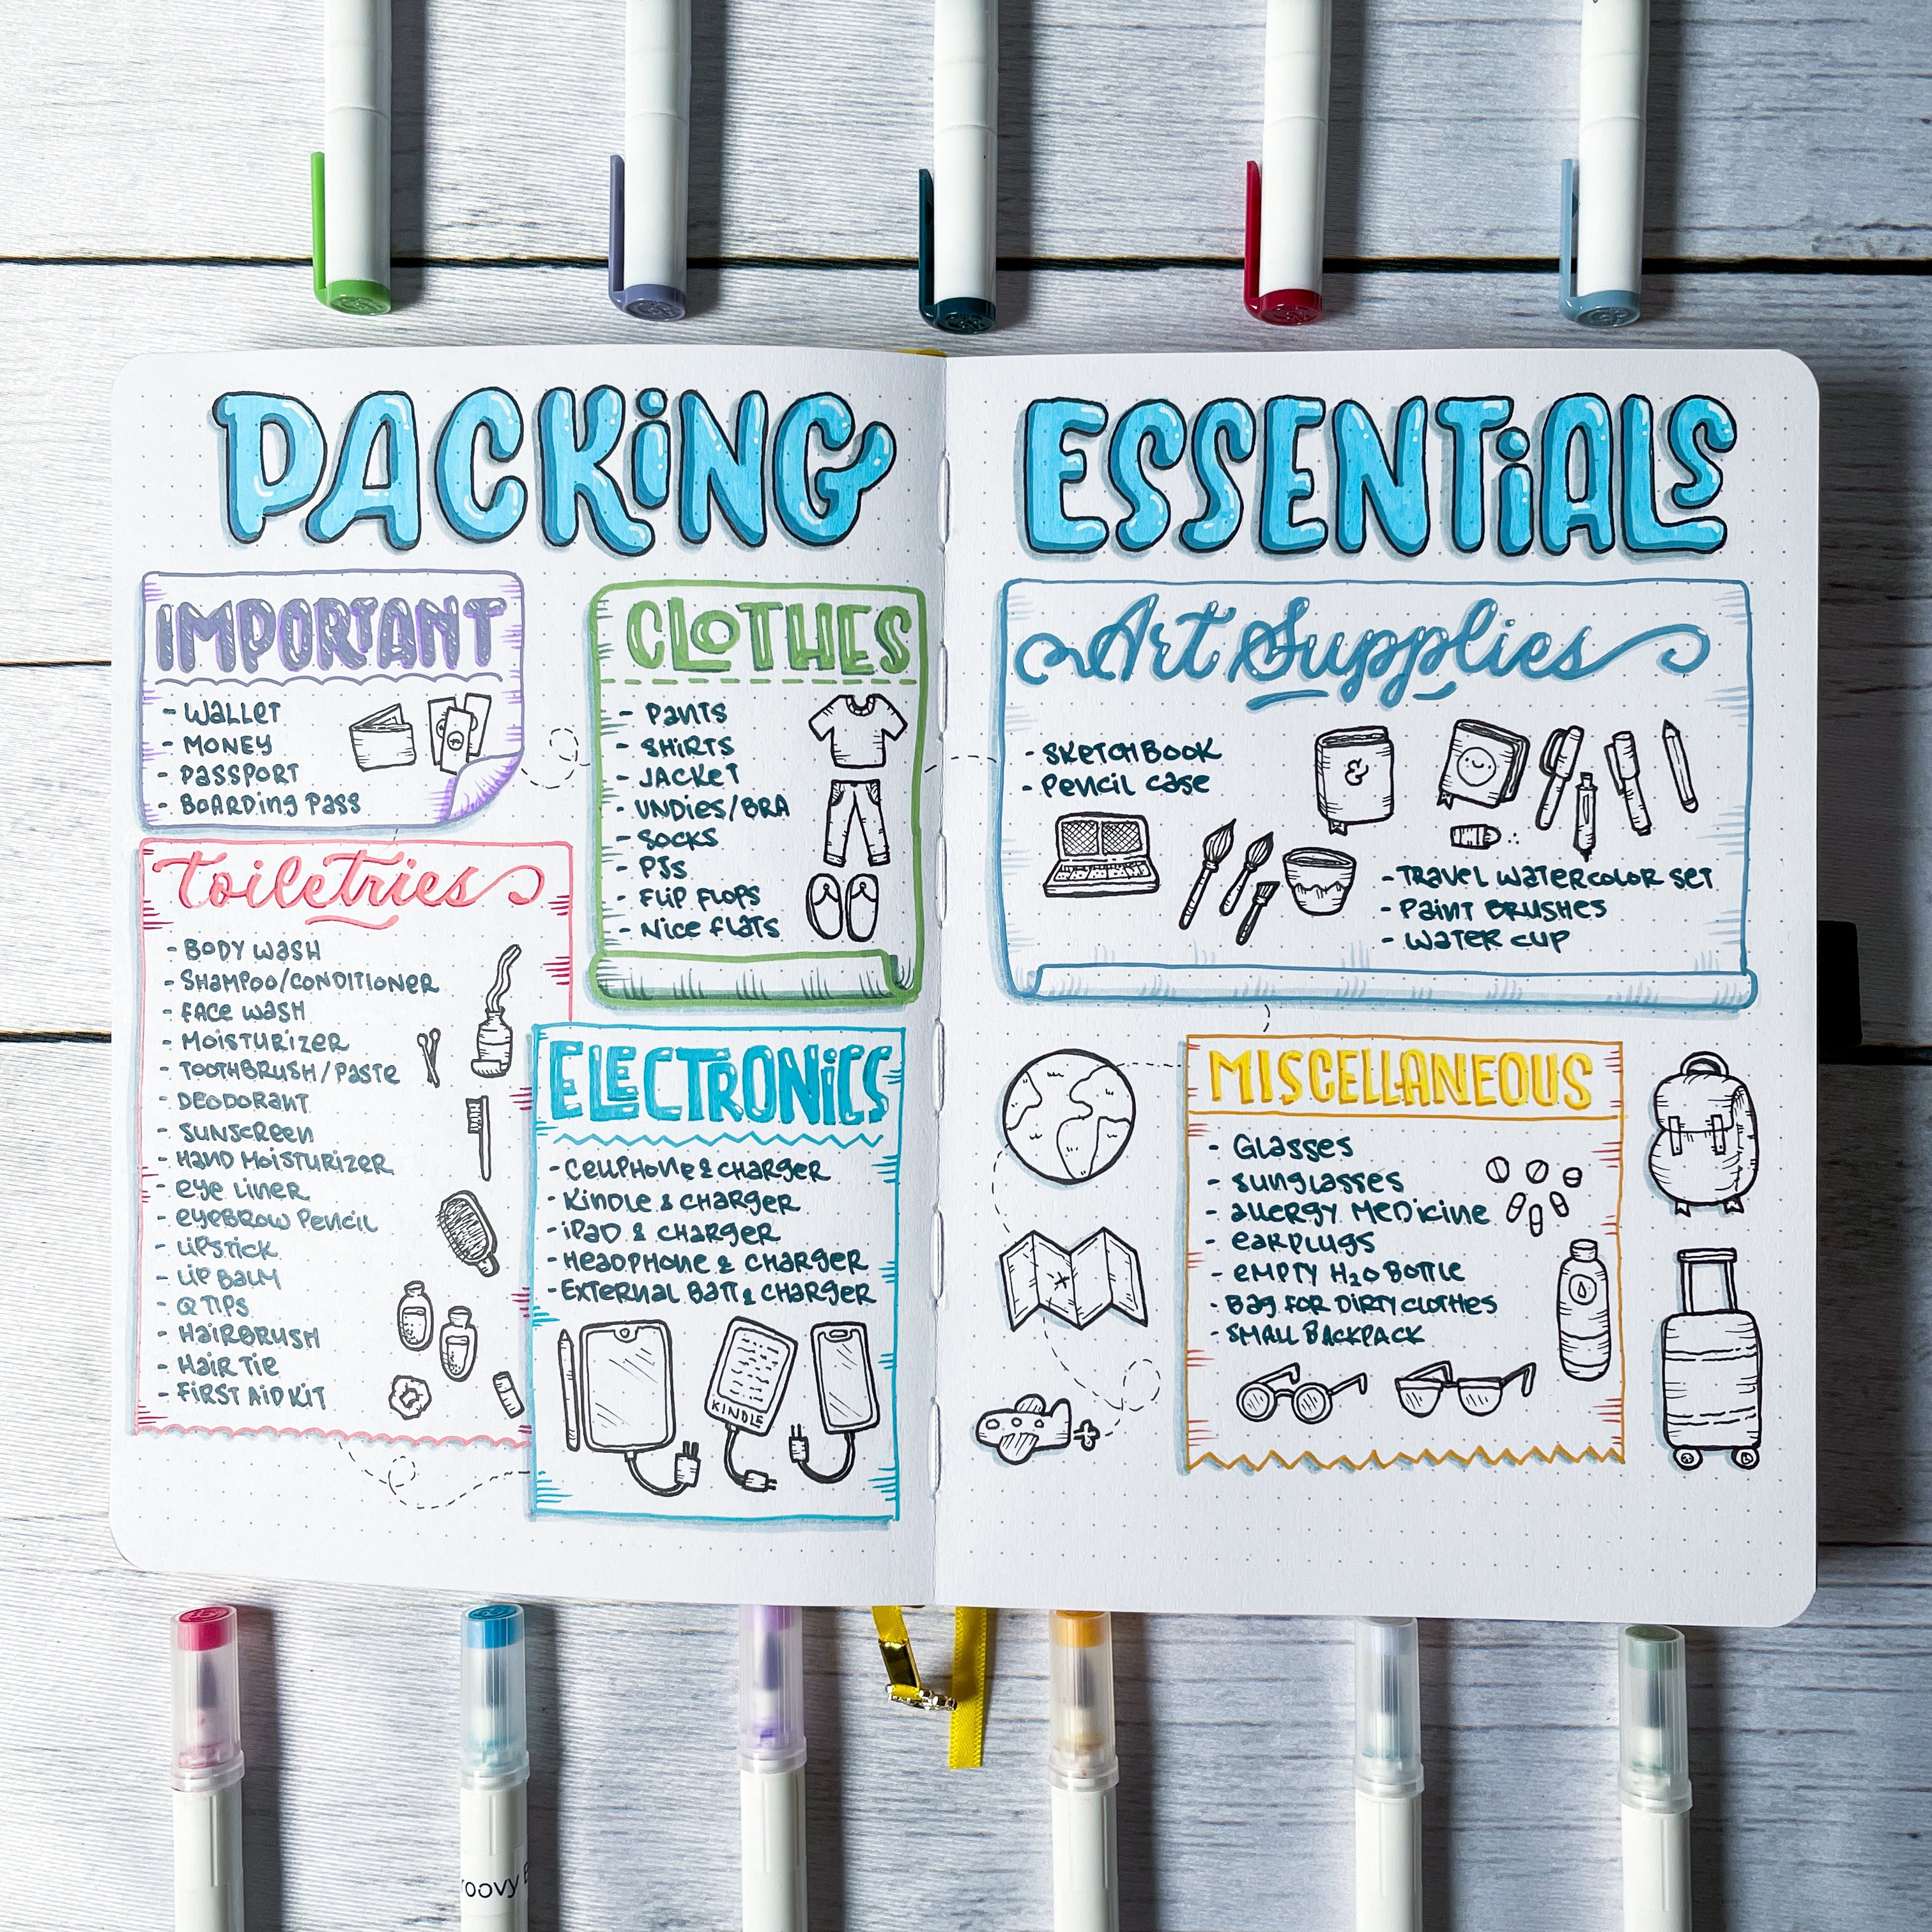 PACKiNG
ESSENTiALS
IMPORTANT
- WALLET
- MONEY
- PASSPORT
- BOARDING PASS
CLOTHES
- PANTS
- SHIRTS
- JACKET
- UNDIES/BRA
- SOCKS
- PJS
- FLIP FLOPS
- NICE FLATS
Toiletries
- BODY WASH
- SHAMPOO/CONDITIONER
- FACE WASH
- MOISTURIZER
- TOOTHBRUSH/PASTE
- DEODORANT
- SUNSCREEN
- HAND MOISTURIZER
- EYE LINER
- EYEBROW PENCIL
- LIPSTICK
- LIP BALM
- Q TIPS
- HAIRBRUSH
- HAIR TIE
- FIRST AID KIT
ELECTRONiCS
- CELLPHONE & CHARGER
- KINDLE & CHARGER
- iPAD & CHARGER
- HEADPHONE & CHARGER
- EXTERNAL BATT & CHARGER
KINDLE
Art Supplies
- SKETCHBOOK
- PENCIL CASE
&
- TRAVEL WATERCOLOR SET
- PAINT BRUSHES
- WATER CUP
MISCELLANEOUS
- GLASSES
- SUNGLASSES
- ALLERGY MEDICINE
- EARPLUGS
- EMPTY H₂O BOTTLE
- BAG FOR DIRTY CLOTHES
- SMALL BACKPACK